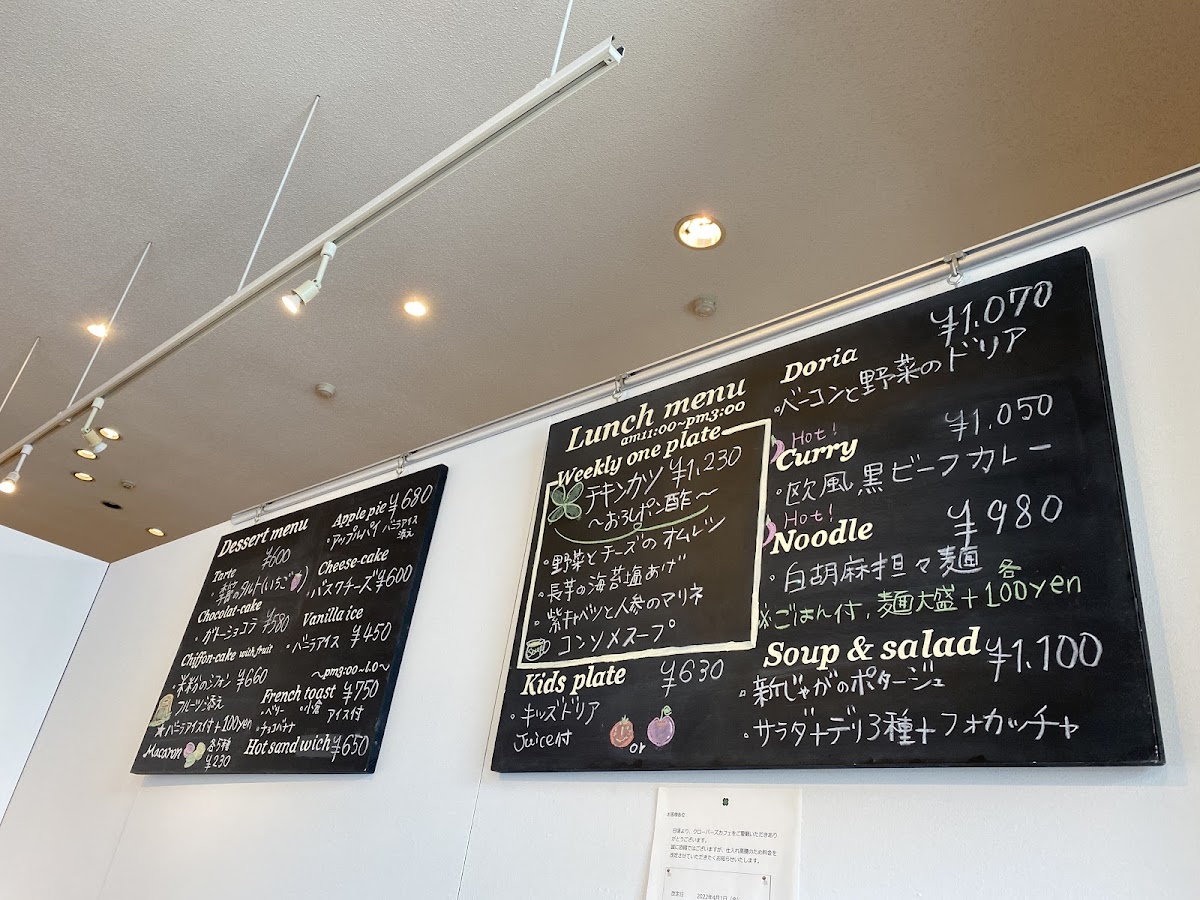 Dessert menu
Tarte ¥600
・季節のタルト(いちご)
Chocolat-cake
・ガトーショコラ ¥580
Chiffon-cake with fruit
・米粉のシフォン ¥660
フルーツ添え
★バニラアイス付+100yen
Macaron 各5種
¥230
Apple pie ¥680
・アップルパイ バニラアイス
添え
Cheese-cake
バスクチーズ ¥600
Vanilla ice
・バニラアイス ¥450
〜pm3:00〜l.o〜
French toast ¥750
・ベリー ・小倉 アイス付
・チョコバナナ
Hot sand wich ¥650
Lunch menu
am11:00~pm3:00
Weekly one plate
チキンカツ ¥1,230
〜おろしポン酢〜
・野菜とチーズのオムレツ
・長芋の海苔塩あげ
・紫キャベツと人参のマリネ
Soup コンソメスープ
Kids plate ¥630
・キッズドリア
Juice付 or
Doria ¥1,070
・ベーコンと野菜のドリア
Hot!
Curry ¥1,050
・欧風黒ビーフカレー
Hot!
Noodle ¥980
・白胡麻担々麺
※ごはん付,麺大盛 各+100yen
Soup & salad ¥1,100
・新じゃがのポタージュ
・サラダ+デリ3種+フォカッチャ
お客様各位
日頃より、クローバーズカフェをご愛顧いただきあり
がとうございます。
誠に恐縮ではございますが、仕入れ高騰のため料金を
改定させていただきたくお知らせいたします。
改定日 2022年4月1日(金)